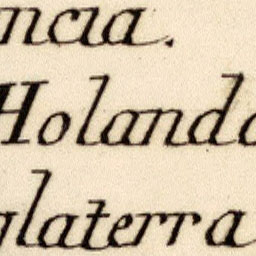 ncia.
Holanda
glaterra